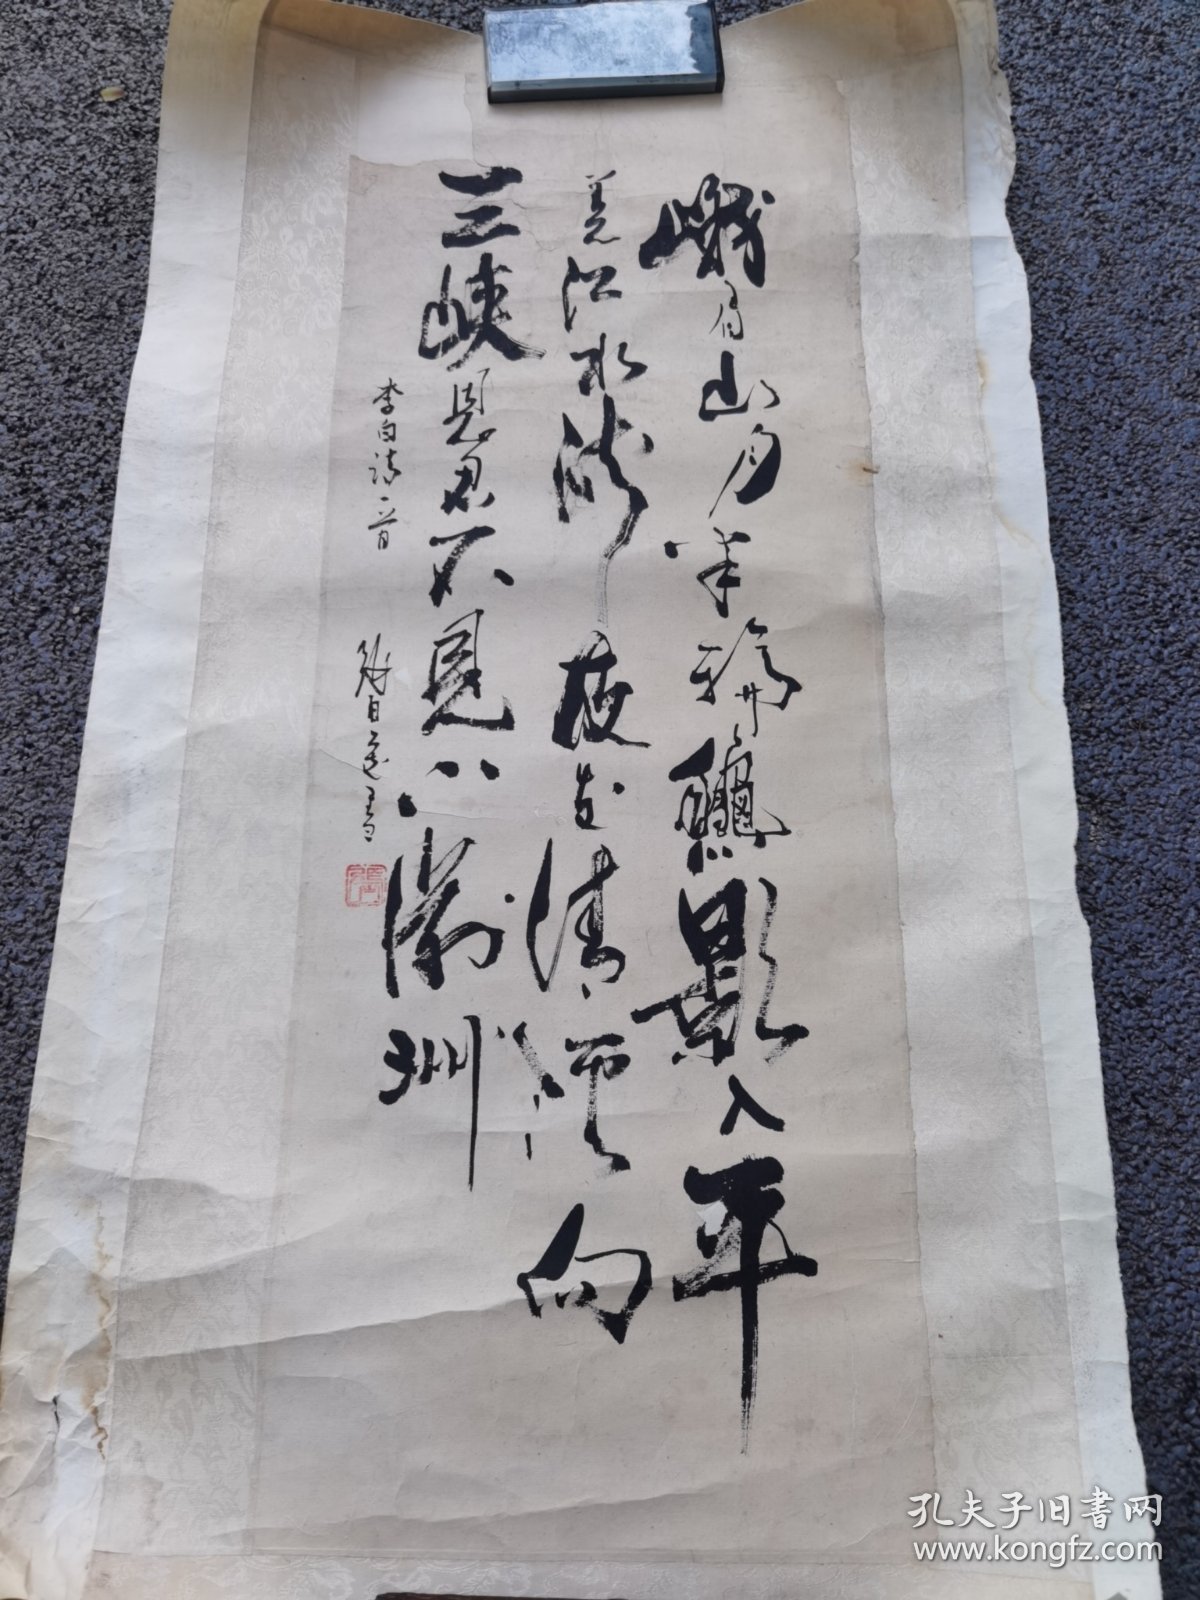 峨眉山月半輪龝影入平
羌江水流夜发清溪向
三峡思君不見下渝州
李白诗一首
書
孔夫子旧书网
www.kongfz.com